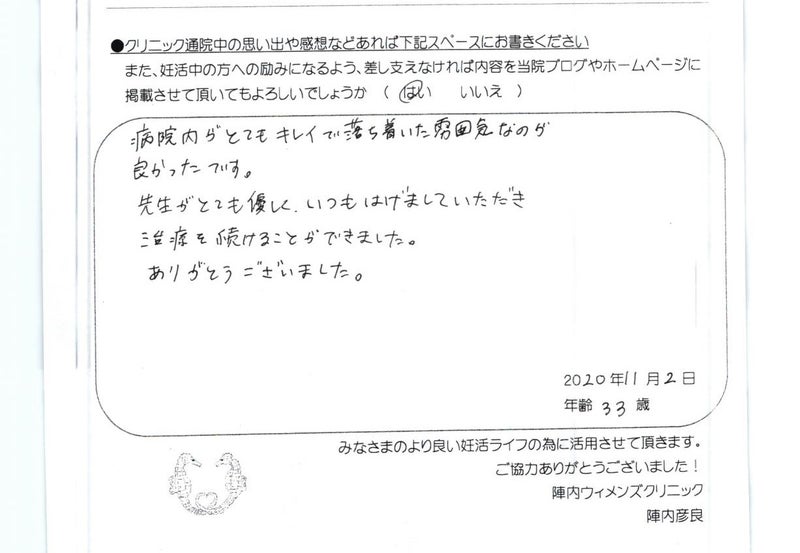 ●クリニック通院中の思い出や感想などあれば下記スペースにお書きください
また、妊活中の方への励みになるよう、差し支えなければ内容を当院ブログやホームページに
掲載させて頂いてもよろしいでしょうか ( はい いいえ )
病院内がとてもキレイで落ち着いた雰囲気なのが
良かったです。
先生がとても優しく、いつもはげましていただき
治療を続けることができました。
ありがとうございました。
2020年11月2日
年齢 33 歳
みなさまのより良い妊活ライフの為に活用させて頂きます。
ご協力ありがとうございました!
陣内ウィメンズクリニック
陣内彦良